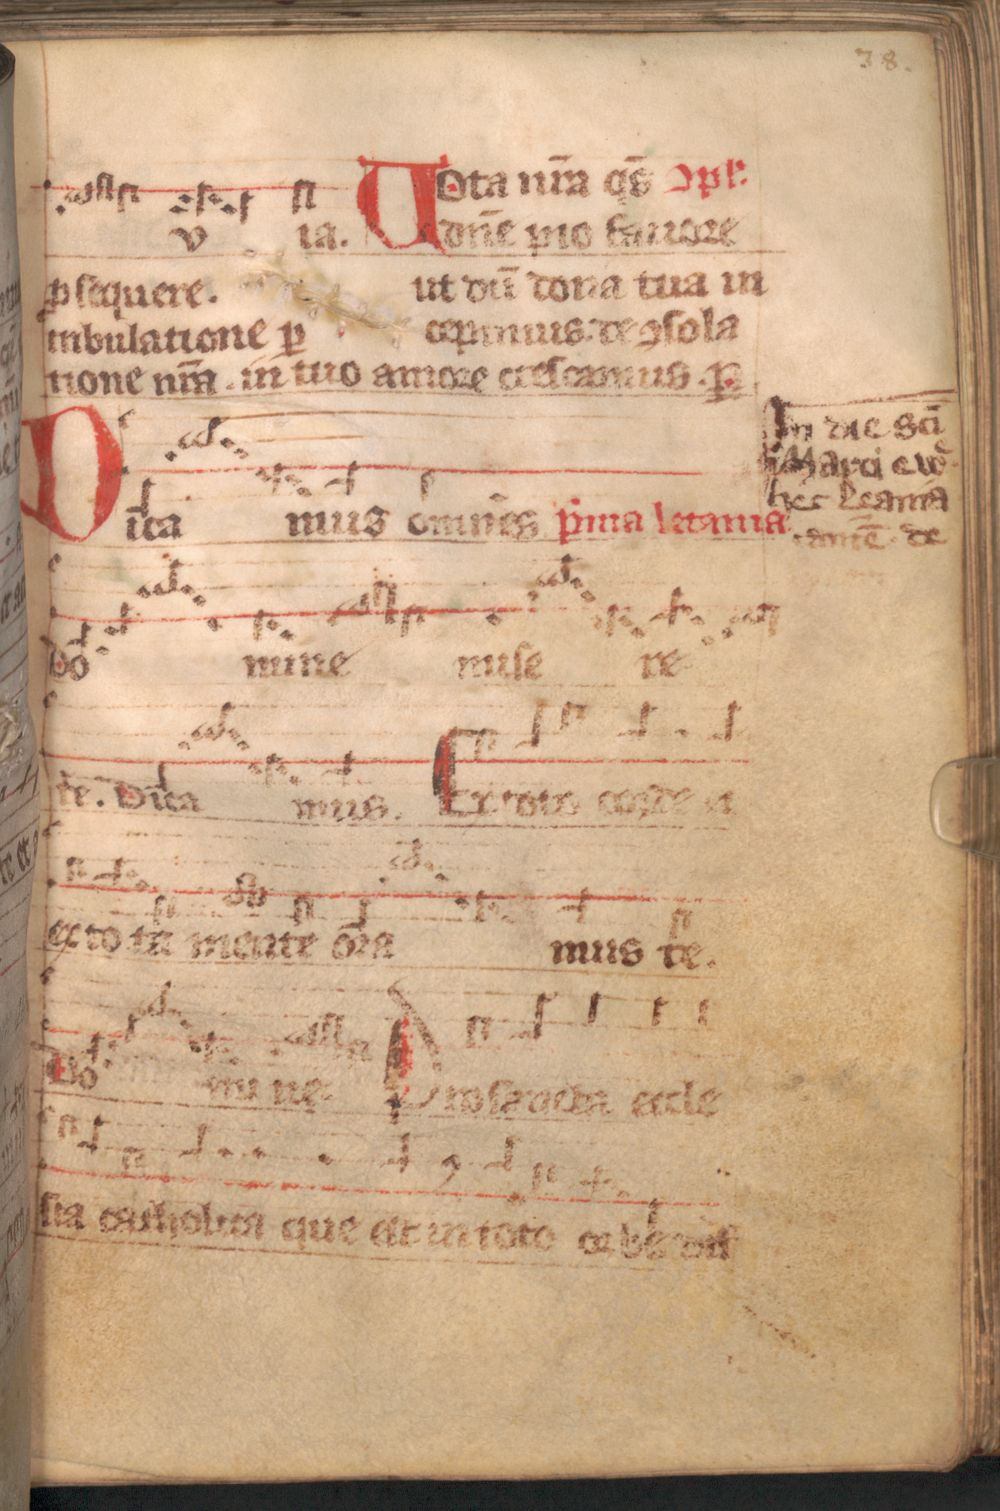 38.
Uota nr̄a qs̄ Opl:
v ia. dn̄e pio fauore
ꝑsequere. ut dū dona tua in
tribulatione ꝑ cepimus. de ꝯsola
tione nr̄a. in tuo amore crescamus. ꝑ
In die Sc̄i
Marci
hec letania
Dica mus omnes p̄ma letania
Do mine mise re
re. Dica mus. Ex toto corde et
ex to ta mente ora mus te.
Do mi ne. Pro sancta eccle
sia catholica que est in toto orbe diff